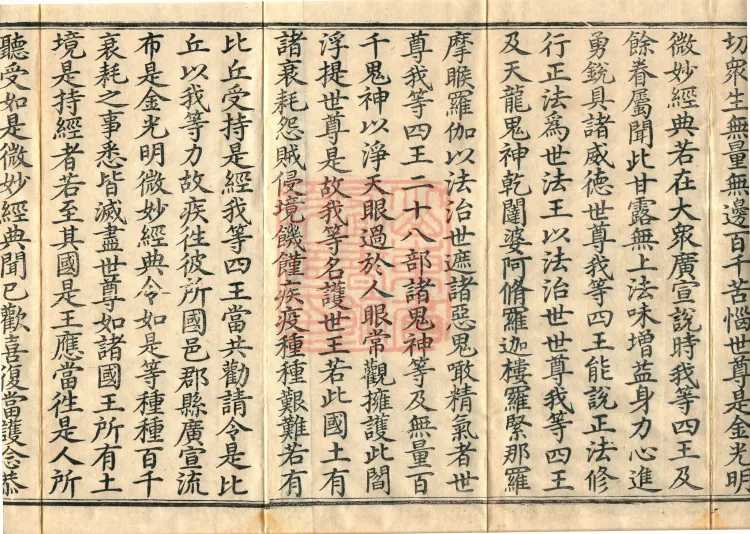 切衆生無量無邊百千苦惱世尊是金光明
微妙經典若在大衆廣宣說時我等四王及
餘眷屬聞此甘露無上法味增益身力心進
勇銳具諸威德世尊我等四王能說正法修
行正法爲世法王以法治世世尊我等四王
及天龍鬼神乾闥婆阿脩羅迦樓羅緊那羅
摩睺羅伽以法治世遮諸惡鬼噉精氣者世
尊我等四王二十八部諸鬼神等及無量百
千鬼神以淨天眼過於人眼常觀擁護此閻
浮提世尊是故我等名護世王若此國土有
諸衰耗怨賊侵境饑饉疾疫種種艱難若有
比丘受持是經我等四王當共勸請令是比
丘以我等力故疾往彼所國邑郡縣廣宣流
布是金光明微妙經典令如是等種種百千
衰耗之事悉皆滅盡世尊如諸國王所有土
境是持經者若至其國是王應當往是人所
聽受如是微妙經典聞已歡喜復當護念恭